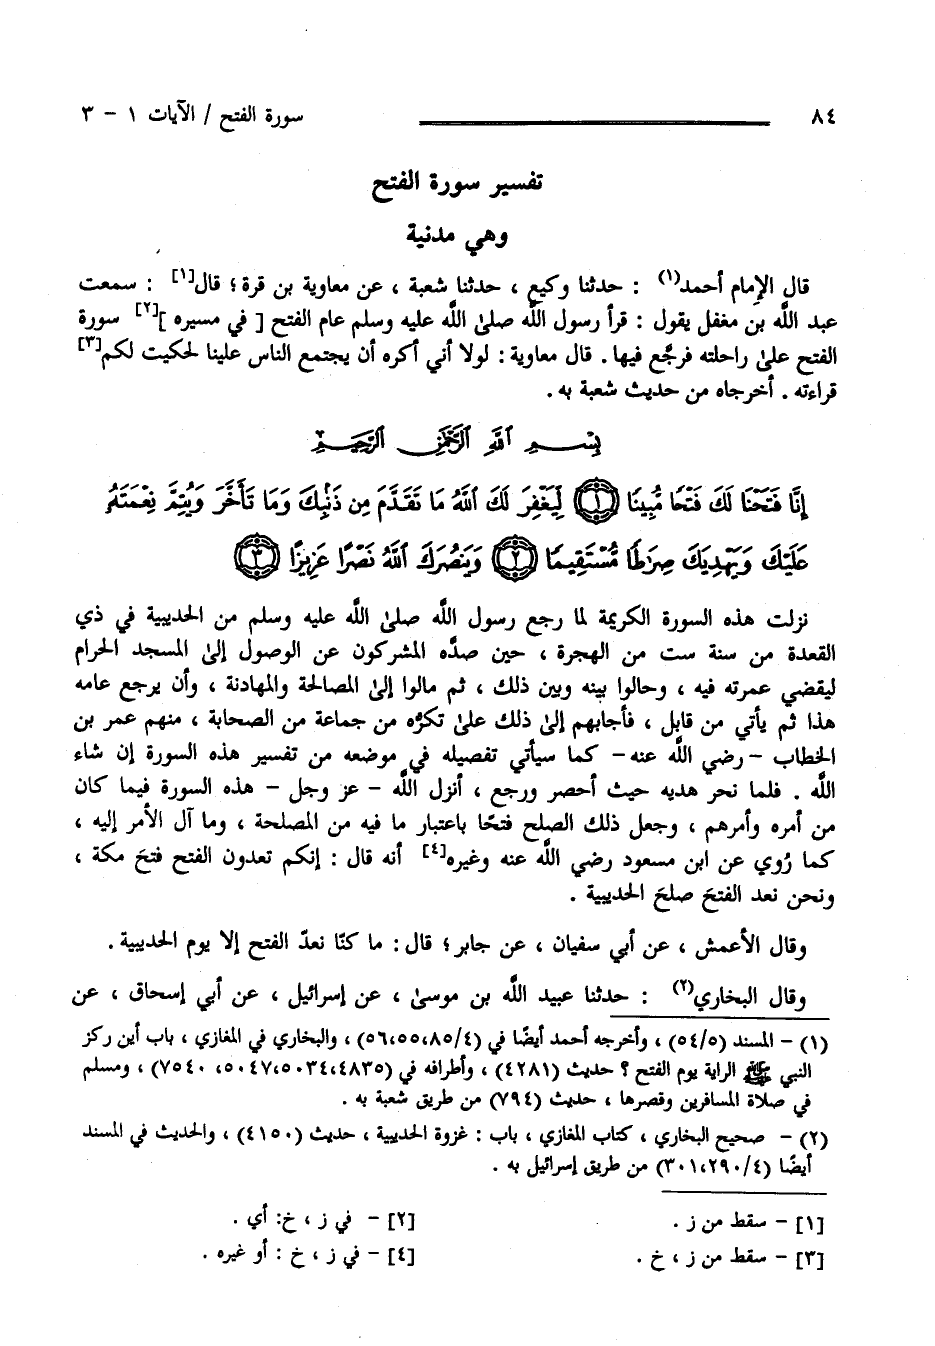 ٨٤ سورة الفتح / الآيات ١ - ٣
تفسير سورة الفتح
وهي مدنية
قال الإمام أحمد(١) : حدثنا وكيع ، حدثنا شعبة ، عن معاوية بن قرة ؛ قال[١] : سمعت
عبد اللَّه بن مغفل يقول : قرأ رسول اللَّه صلىٰ اللَّه عليه وسلم عام الفتح [ في مسيره ][٢] سورة
الفتح علىٰ راحلته فرجَّع فيها . قال معاوية : لولا أني أكره أن يجتمع الناس علينا لحكيت لكم[٣]
قراءته . أخرجاه من حديث شعبة به .
بِسْمِ ٱللَّهِ ٱلرَّحْمَٰنِ ٱلرَّحِيمِ
إِنَّا فَتَحْنَا لَكَ فَتْحًا مُّبِينًا ١ لِّيَغْفِرَ لَكَ ٱللَّهُ مَا تَقَدَّمَ مِن ذَنۢبِكَ وَمَا تَأَخَّرَ وَيُتِمَّ نِعْمَتَهُۥ
عَلَيْكَ وَيَهْدِيَكَ صِرَٰطًا مُّسْتَقِيمًا ٢ وَيَنصُرَكَ ٱللَّهُ نَصْرًا عَزِيزًا ٣
نزلت هذه السورة الكريمة لما رجع رسول اللَّه صلىٰ اللَّه عليه وسلم من الحديبية في ذي
القعدة من سنة ست من الهجرة ، حين صدَّه المشركون عن الوصول إلىٰ المسجد الحرام
ليقضي عمرته فيه ، وحالوا بينه وبين ذلك ، ثم مالوا إلىٰ المصالحة والمهادنة ، وأن يرجع عامه
هذا ثم يأتي من قابل ، فأجابهم إلىٰ ذلك علىٰ تكرُّه من جماعة من الصحابة ، منهم عمر بن
الخطاب - رضي اللَّه عنه - كما سيأتي تفصيله في موضعه من تفسير هذه السورة إن شاء
اللَّه . فلما نحر هديه حيث أحصر ورجع ، أنزل اللَّه - عز وجل - هذه السورة فيما كان
من أمره وأمرهم ، وجعل ذلك الصلح فتحًا باعتبار ما فيه من المصلحة ، وما آل الأمر إليه ،
كما رُوي عن ابن مسعود رضي اللَّه عنه وغيره[٤] أنه قال : إنكم تعدون الفتح فتحَ مكة ،
ونحن نعد الفتحَ صلحَ الحديبية .
وقال الأعمش ، عن أبي سفيان ، عن جابر ؛ قال : ما كنّا نعدّ الفتح إلا يوم الحديبية .
وقال البخاري(٢) : حدثنا عبيد اللَّه بن موسىٰ ، عن إسرائيل ، عن أبي إسحاق ، عن
(١) - المسند (٥٤/٥) ، وأخرجه أحمد أيضًا في (٥٦،٥٥،٨٥/٤) ، والبخاري في المغازي ، باب أين ركز
النبي ﷺ الراية يوم الفتح ؟ حديث (٤٢٨١) ، وأطرافه في (٤٨٣٥،٥٠٣٤،٥٠٤٧، ٧٥٤٠) ، ومسلم
في صلاة المسافرين وقصرها ، حديث (٧٩٤) من طريق شعبة به .
(٢) - صحيح البخاري ، كتاب المغازي ، باب : غزوة الحديبية ، حديث (٤١٥٠) ، والحديث في المسند
أيضًا (٣٠١،٢٩٠/٤) من طريق إسرائيل به .
[١] - سقط من ز . [٢] - في ز ، خ: أي .
[٣] - سقط من ز ، خ . [٤] - في ز ، خ : أو غيره .